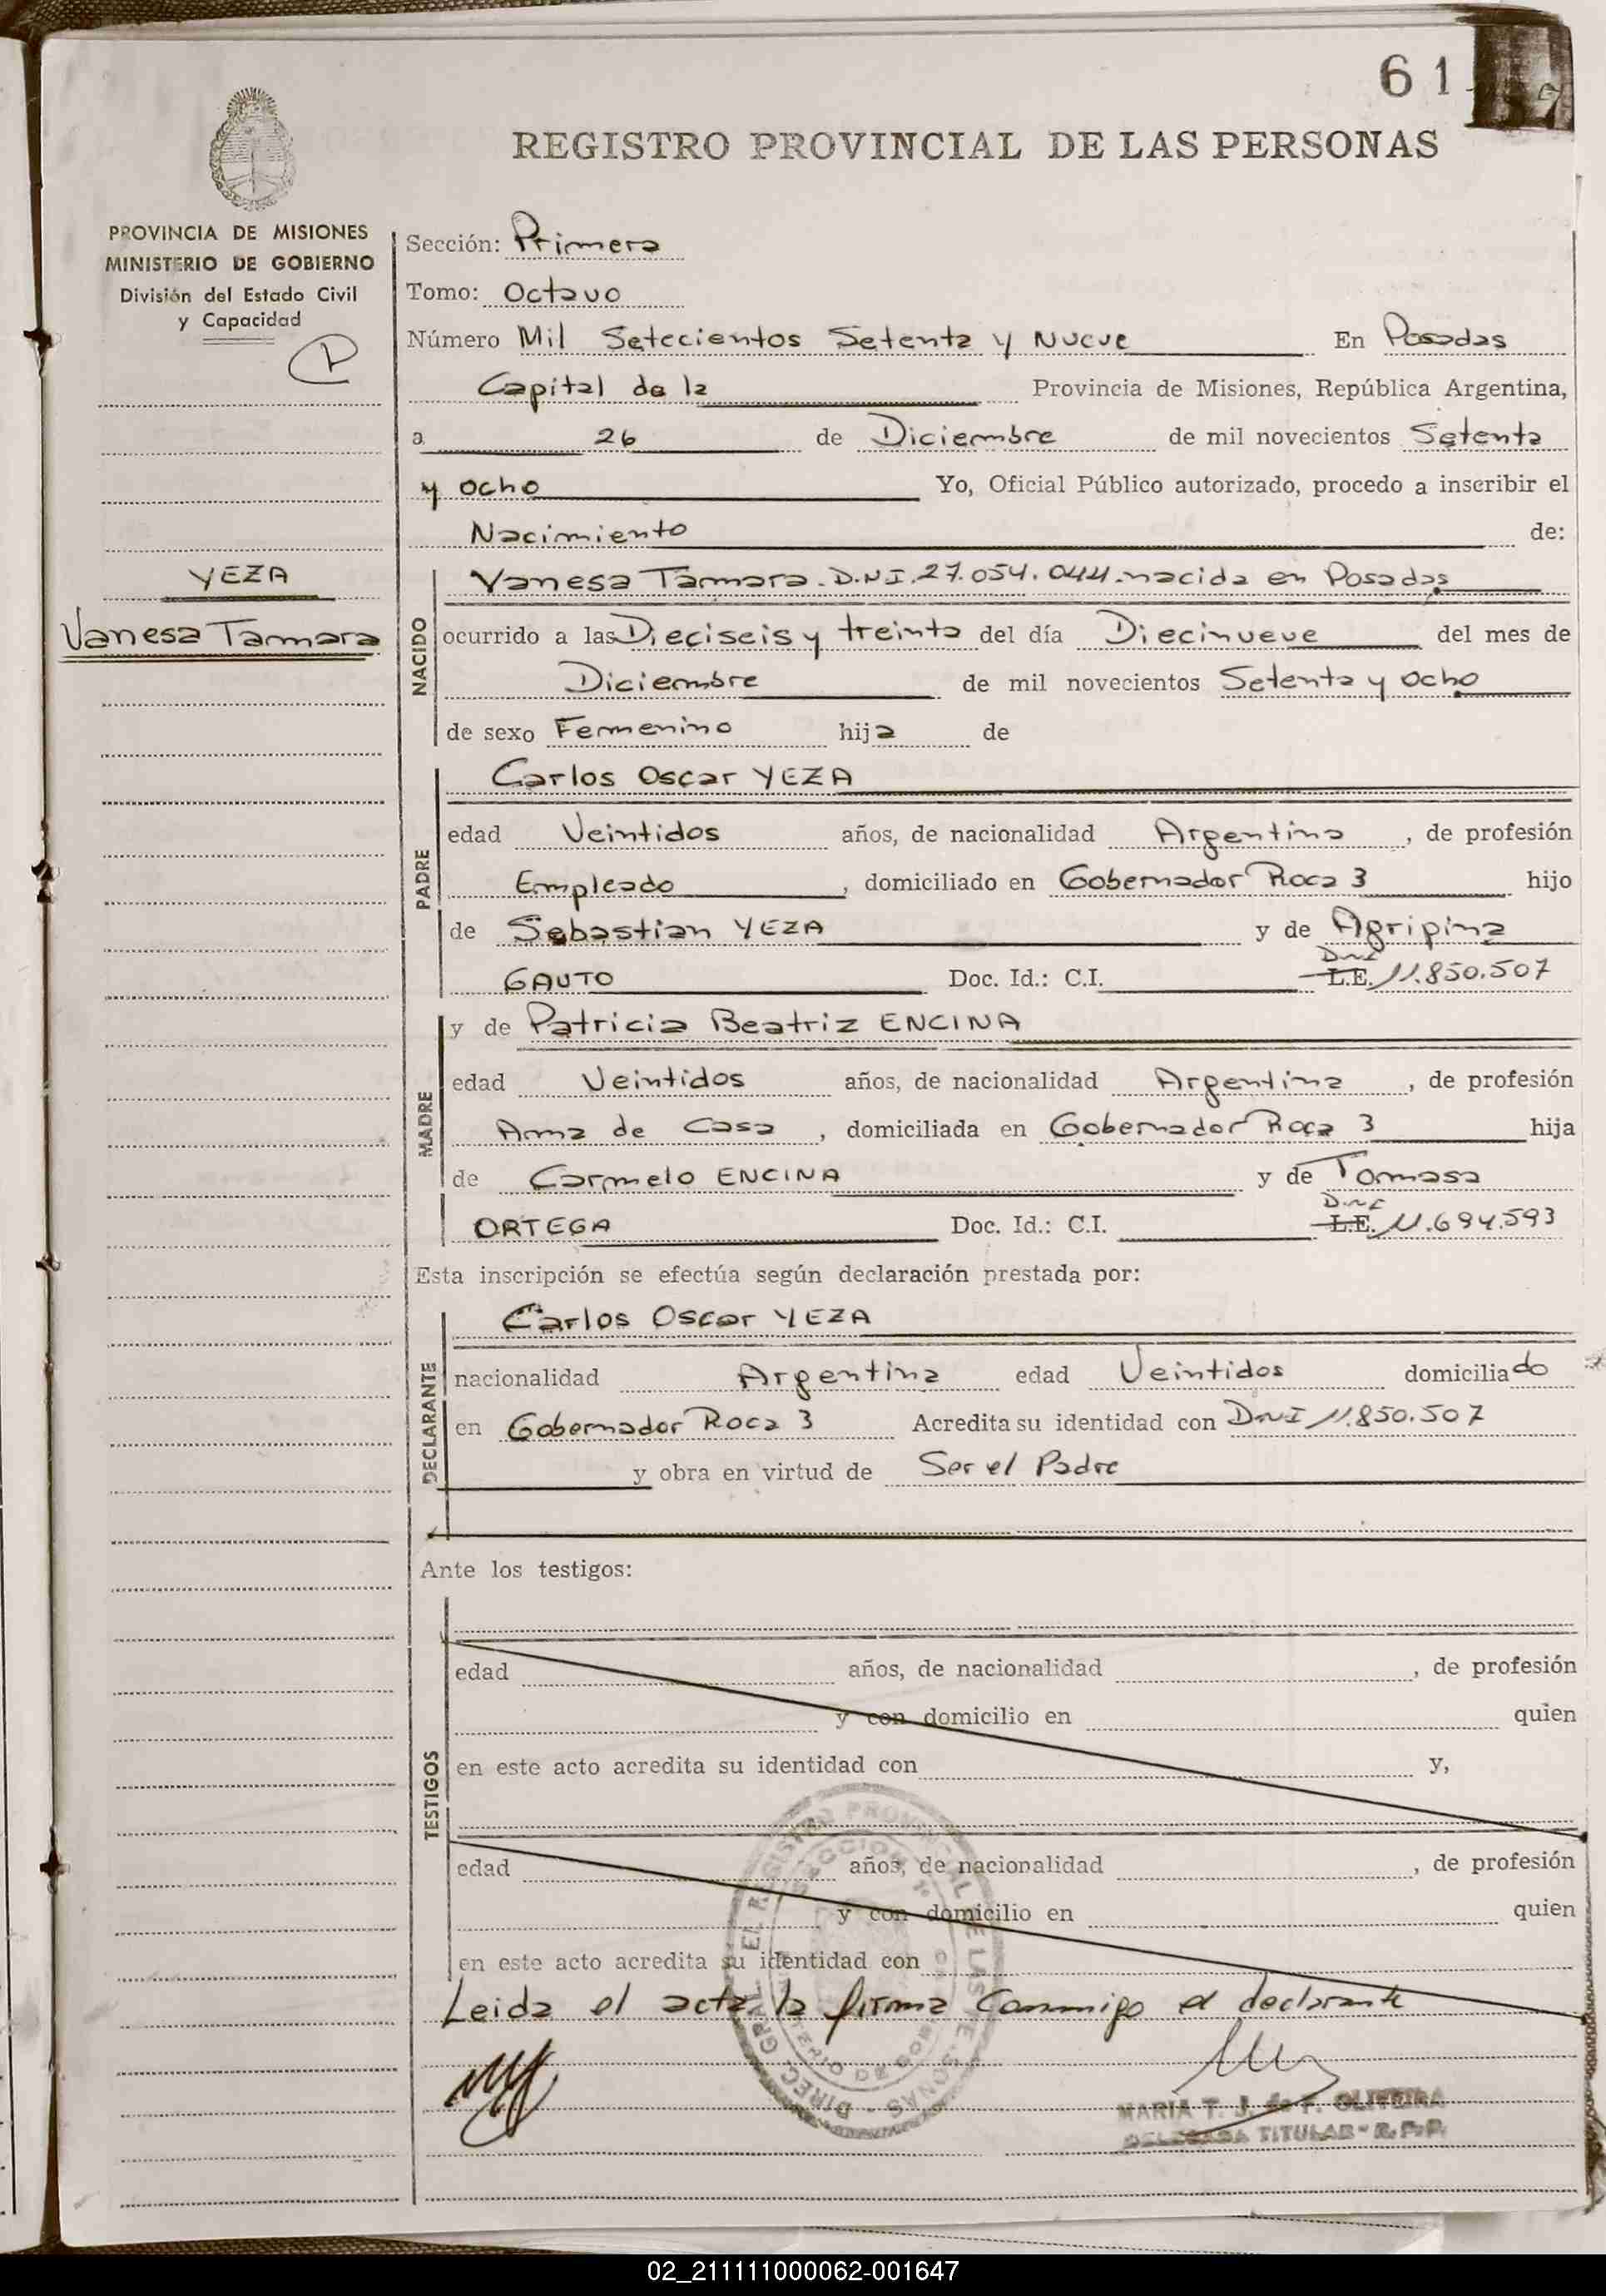 61
REGISTRO PROVINCIAL DE LAS PERSONAS
PROVINCIA DE MISIONES
MINISTERIO DE GOBIERNO
División del Estado Civil
y Capacidad
Sección: Primera
Tomo: Octavo
Número Mil Setecientos Setenta y Nueve En Posadas
Capital de la Provincia de Misiones, República Argentina,
a 26 de Diciembre de mil novecientos Setenta
y ocho Yo, Oficial Público autorizado, procedo a inscribir el
Nacimiento de:
YEZA
Vanesa Tamara
NACIDO
Vanesa Tamara. D.N.I. 27.054.044. nacida en Posadas
ocurrido a las Dieciseis y treinta del día Diecinueve del mes de
Diciembre de mil novecientos Setenta y ocho
de sexo Femenino hija de
PADRE
Carlos Oscar YEZA
edad Veintidos años, de nacionalidad Argentina, de profesión
Empleado, domiciliado en Gobernador Roca 3 hijo
de Sebastian YEZA y de Agripina
GAUTO Doc. Id.: C.I. L.E. DNI 11.850.507
MADRE
y de Patricia Beatriz ENCINA
edad Veintidos años, de nacionalidad Argentina, de profesión
Ama de Casa, domiciliada en Gobernador Roca 3 hija
de Carmelo ENCINA y de Tomasa
ORTEGA Doc. Id.: C.I. L.E. DNI 11.694.593
Esta inscripción se efectúa según declaración prestada por:
DECLARANTE
Carlos Oscar YEZA
nacionalidad Argentina edad Veintidos domiciliado
en Gobernador Roca 3 Acredita su identidad con DNI 11.850.507
y obra en virtud de Ser el Padre
Ante los testigos:
TESTIGOS
edad años, de nacionalidad , de profesión
y con domicilio en quien
en este acto acredita su identidad con y,
edad años, de nacionalidad , de profesión
y con domicilio en quien
en este acto acredita su identidad con
Leida el acta la firma conmigo el declarante
DIREC. GRAL. EL REGISTRO PROVINCIAL DE LAS PERSONAS
SECCION 1ª
MINISTERIO DE GOBIERNO
MARIA T. J. de F. OLIVEIRA
DELEGADA TITULAR - R.P.P.
02_211111000062-001647